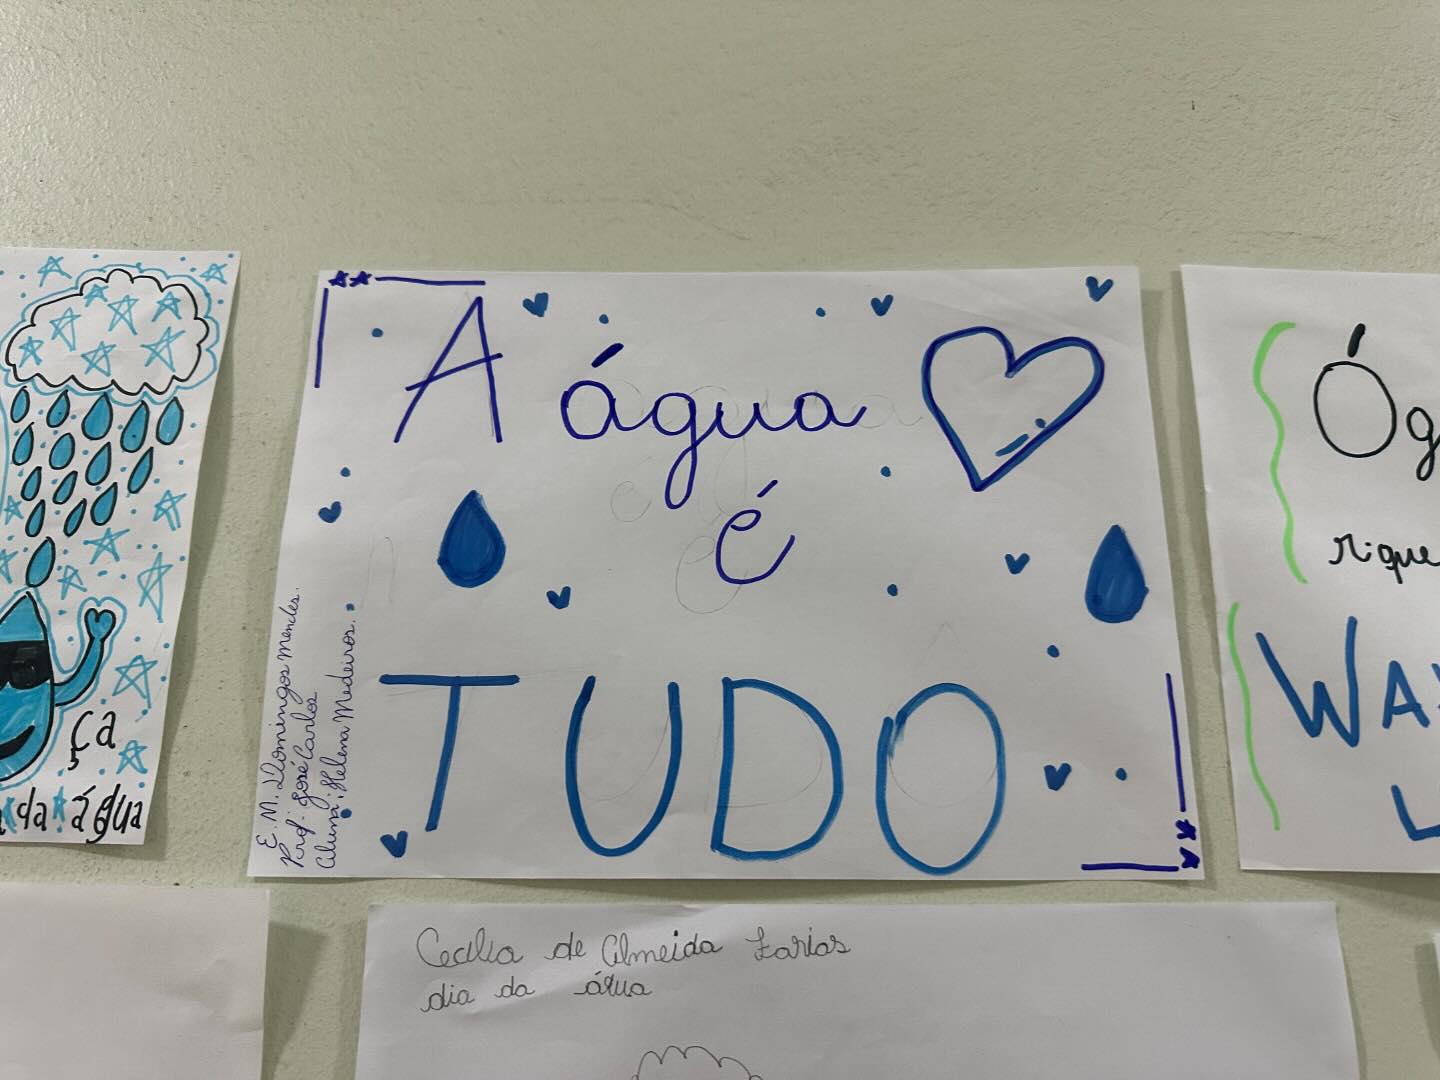 A água
é
TUDO
E. M. Domingos Mendes.
Prof: José Carlos
Aluna: Helena Medeiros.
ça
da água
Óg
rique
WA
L
Cecília de Almeida Farias
dia da água